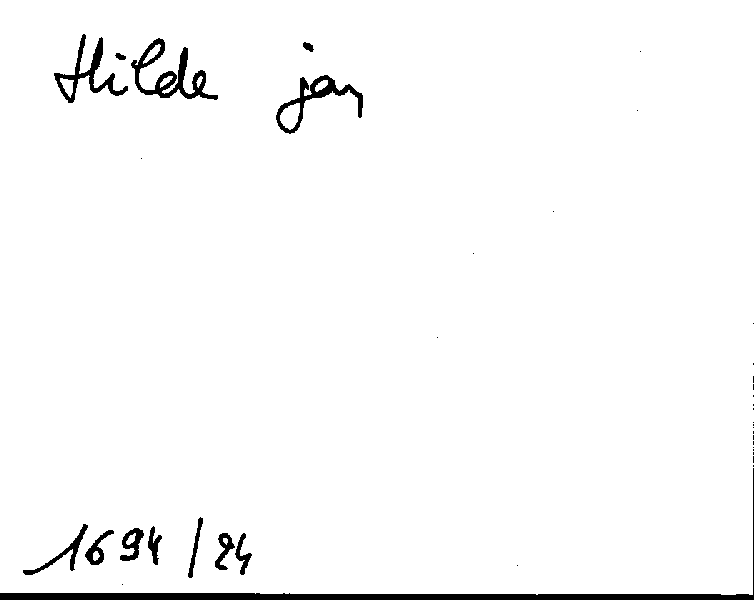 Hilde jan
1694/24